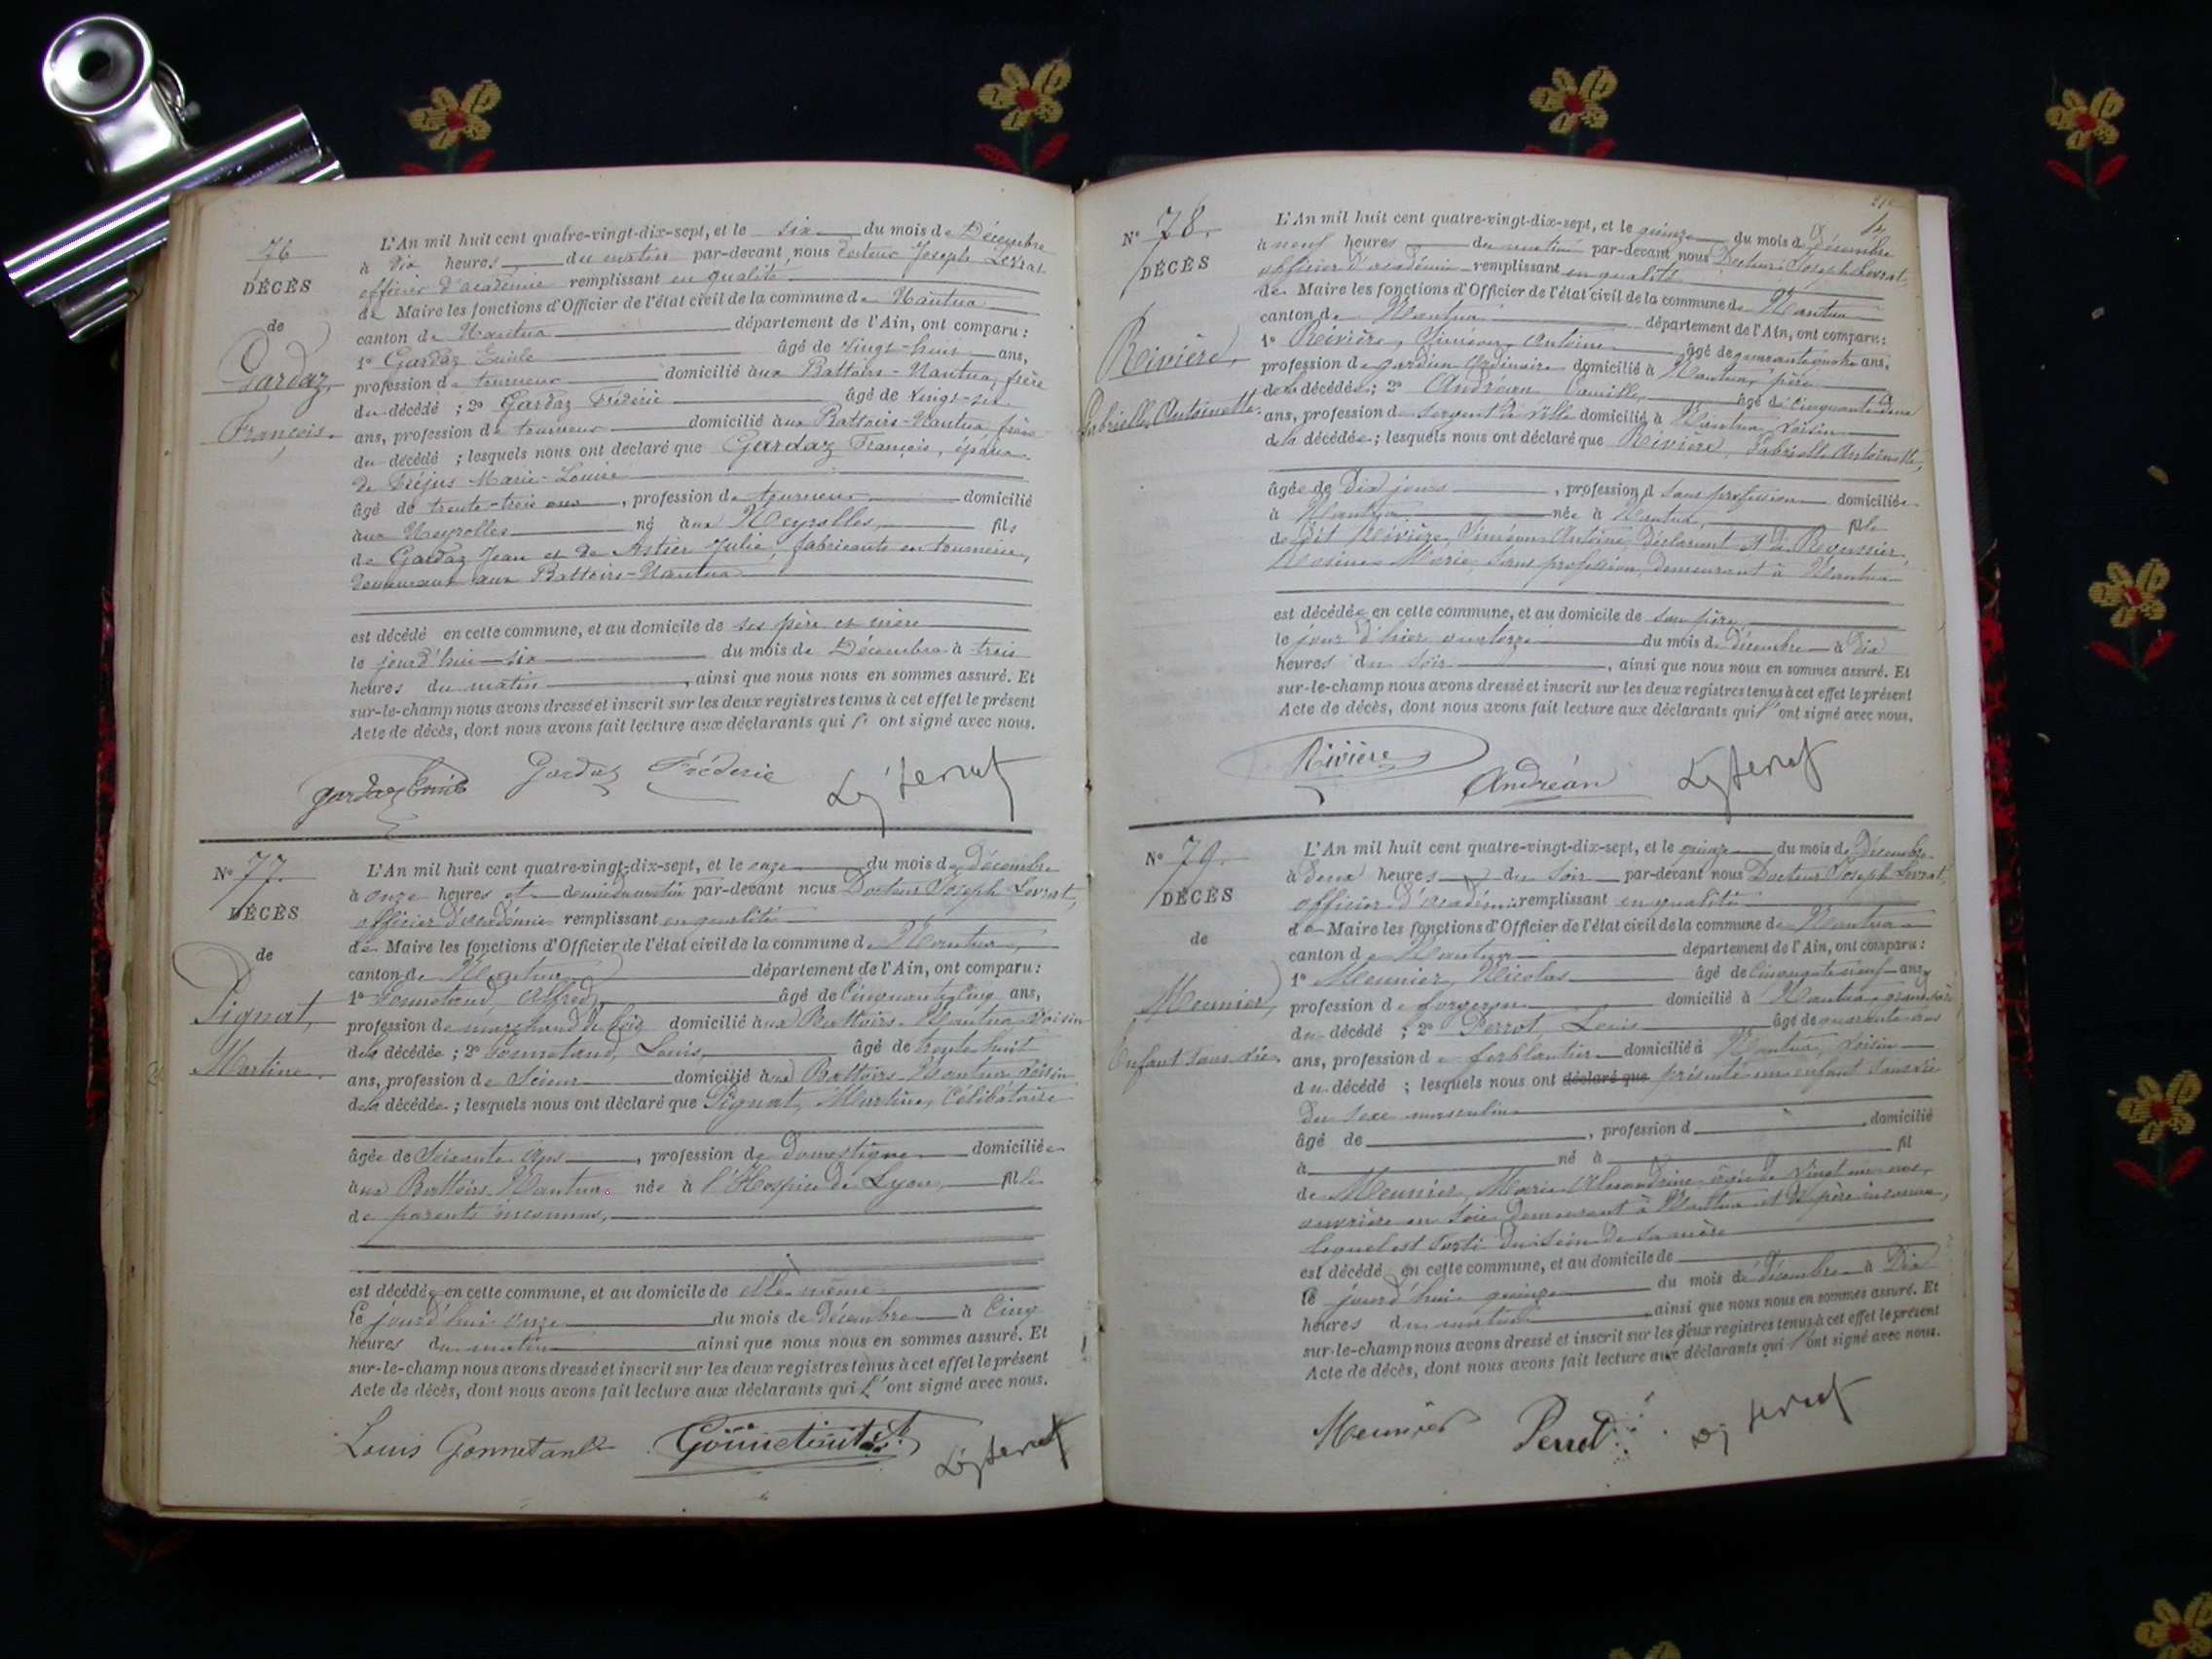 76
DÉCÈS
de
Gardaz
François.
L'An mil huit cent quatre-vingt-dix-sept, et le six du mois de Décembre
à dix heures du matin par-devant nous Docteur Joseph Levrat
officier d'académie remplissant en qualité
de Maire les fonctions d'Officier de l'état civil de la commune de Nantua
canton de Nantua département de l'Ain, ont comparu :
1º Gardaz Emile âgé de vingt-huit ans,
profession de tourneur domicilié aux Battoirs-Nantua, frère
du décédé ; 2º Gardaz Frédéric âgé de vingt-six
ans, profession de tourneur domicilié aux Battoirs-Nantua frère
du décédé ; lesquels nous ont déclaré que Gardaz François, époux
de Marie-Louise
âgé de trente-trois ans, profession de tourneur domicilié
aux Neyrolles né aux Neyrolles, fils
de Gardaz Jean et de Astier Julie, fabricants en tournerie,
demeurant aux Battoirs-Nantua
est décédé en cette commune, et au domicile de ses père et mère
le jourd'hui six du mois de Décembre à trois
heures du matin, ainsi que nous nous en sommes assuré. Et
sur-le-champ nous avons dressé et inscrit sur les deux registres tenus à cet effet le présent
Acte de décès, dont nous avons fait lecture aux déclarants qui l' ont signé avec nous.
Gardaz Emile Gardaz Frédéric
Nº 77.
DÉCÈS
de
Pignat,
Martine.
L'An mil huit cent quatre-vingt-dix-sept, et le onze du mois de Décembre
à onze heures et demie du matin par-devant nous Docteur Joseph Levrat,
officier d'académie remplissant en qualité
de Maire les fonctions d'Officier de l'état civil de la commune de Nantua,
canton de Nantua département de l'Ain, ont comparu :
1º Gonnetand, Alfred, âgé de cinquante cinq ans,
profession de marchand de bois domicilié aux Battoirs-Nantua voisin
de la décédée ; 2º Gonnetand, Louis, âgé de trente huit
ans, profession de scieur domicilié aux Battoirs Nantua voisin
de la décédée ; lesquels nous ont déclaré que Pignat, Martine, célibataire
âgée de soixante ans, profession de domestique domiciliée
aux Battoirs Nantua. née à l'Hospice de Lyon, fille
de parents inconnus,
est décédée en cette commune, et au domicile de elle-même
le jourd'hui onze du mois de Décembre à cinq
heures du matin ainsi que nous nous en sommes assuré. Et
sur-le-champ nous avons dressé et inscrit sur les deux registres tenus à cet effet le présent
Acte de décès, dont nous avons fait lecture aux déclarants qui l' ont signé avec nous.
Louis Gonnetand
Nº 78.
DÉCÈS
Rivière,
Gabrielle Antoinette.
L'An mil huit cent quatre-vingt-dix-sept, et le quinze du mois de Décembre
à neuf heures du matin par-devant nous Docteur Joseph Levrat,
officier d'académie remplissant en qualité
de Maire les fonctions d'Officier de l'état civil de la commune de Nantua
canton de Nantua département de l'Ain, ont comparu :
1º Rivière, Siméon Antoine âgé de quarante quatre ans,
profession de gardien domicilié à Nantua, père
de la décédée ; 2º Andréan, Camille, âgé de cinquante deux
ans, profession de sergent de ville domicilié à Nantua, voisin
de la décédée ; lesquels nous ont déclaré que Rivière, Gabrielle Antoinette,
âgée de dix jours, profession d sans profession domiciliée
à Nantua née à Nantua, fille
de dit Rivière, Siméon Antoine, déclarant et de
Marie, sans profession, demeurant à Nantua
est décédée en cette commune, et au domicile de son père,
le jour d'hier quatorze du mois de Décembre à dix
heures du soir, ainsi que nous nous en sommes assuré. Et
sur-le-champ nous avons dressé et inscrit sur les deux registres tenus à cet effet le présent
Acte de décès, dont nous avons fait lecture aux déclarants qui l'ont signé avec nous.
Rivière Andréan
Nº 79.
DÉCÈS
de
Meunier,
Enfant sans vie.
L'An mil huit cent quatre-vingt-dix-sept, et le quinze du mois de Décembre
à deux heures du soir par-devant nous Docteur Joseph Levrat,
officier d'académie remplissant en qualité
de Maire les fonctions d'Officier de l'état civil de la commune de Nantua
canton de Nantua département de l'Ain, ont comparu :
1º Meunier, Nicolas âgé de cinquante neuf ans,
profession de forgeron domicilié à Nantua, grand père
du décédé ; 2º Perrot, Louis âgé de quarante deux
ans, profession de ferblantier domicilié à Nantua, voisin
du décédé ; lesquels nous ont déclaré que présenté un enfant sans vie
du sexe masculin
âgé de , profession d domicilié
à né à fil
de Meunier, Marie Alexandrine âgée de vingt un ans,
ouvrière en soie demeurant à Nantua et de père inconnu,
lequel est sorti du sein de sa mère
est décédé en cette commune, et au domicile de
le jourd'hui quinze du mois de Décembre à dix
heures du matin ainsi que nous nous en sommes assuré. Et
sur-le-champ nous avons dressé et inscrit sur les deux registres tenus à cet effet le présent
Acte de décès, dont nous avons fait lecture aux déclarants qui l'ont signé avec nous.
Meunier Perrot